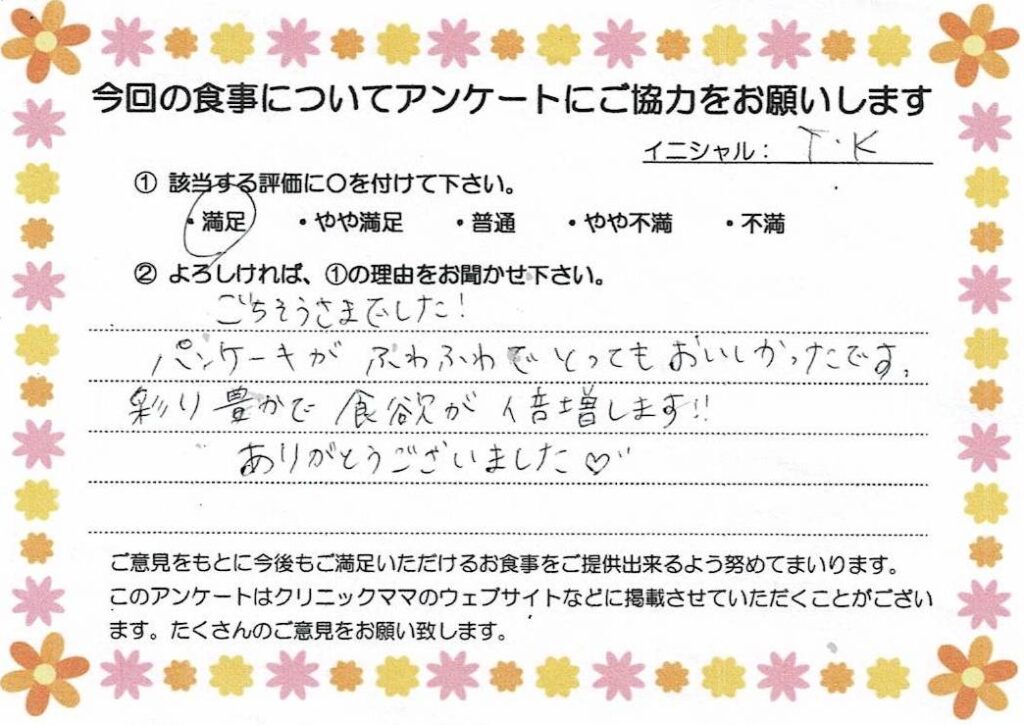 今回の食事についてアンケートにご協力をお願いします
イニシャル： T・K
① 該当する評価に○を付けて下さい。
・満足 ・やや満足 ・普通 ・やや不満 ・不満
② よろしければ、①の理由をお聞かせ下さい。
ごちそうさまでした！
パンケーキが ふわふわで とっても おいしかったです。
彩り豊かで 食欲が 倍増します!!
ありがとうございました♡
ご意見をもとに今後もご満足いただけるお食事をご提供出来るよう努めてまいります。
このアンケートはクリニックママのウェブサイトなどに掲載させていただくことがござい
ます。たくさんのご意見をお願い致します。